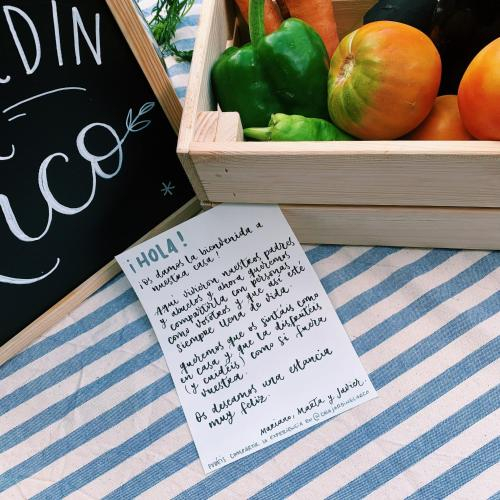 RDÍN
rco
¡HOLA!
¡Os damos la bienvenida a
nuestra casa!
Aquí vivieron nuestros padres
y abuelos y ahora queremos
compartirla con personas
como vosotros y que así esté
siempre llena de vida.
Queremos que os sintáis como
en casa y que la disfrutéis
(y cuidéis) como si fuera
vuestra.
Os deseamos una estancia
muy feliz.
Mariano, Marta y Javier.
PODÉIS COMPARTIR LA EXPERIENCIA EN